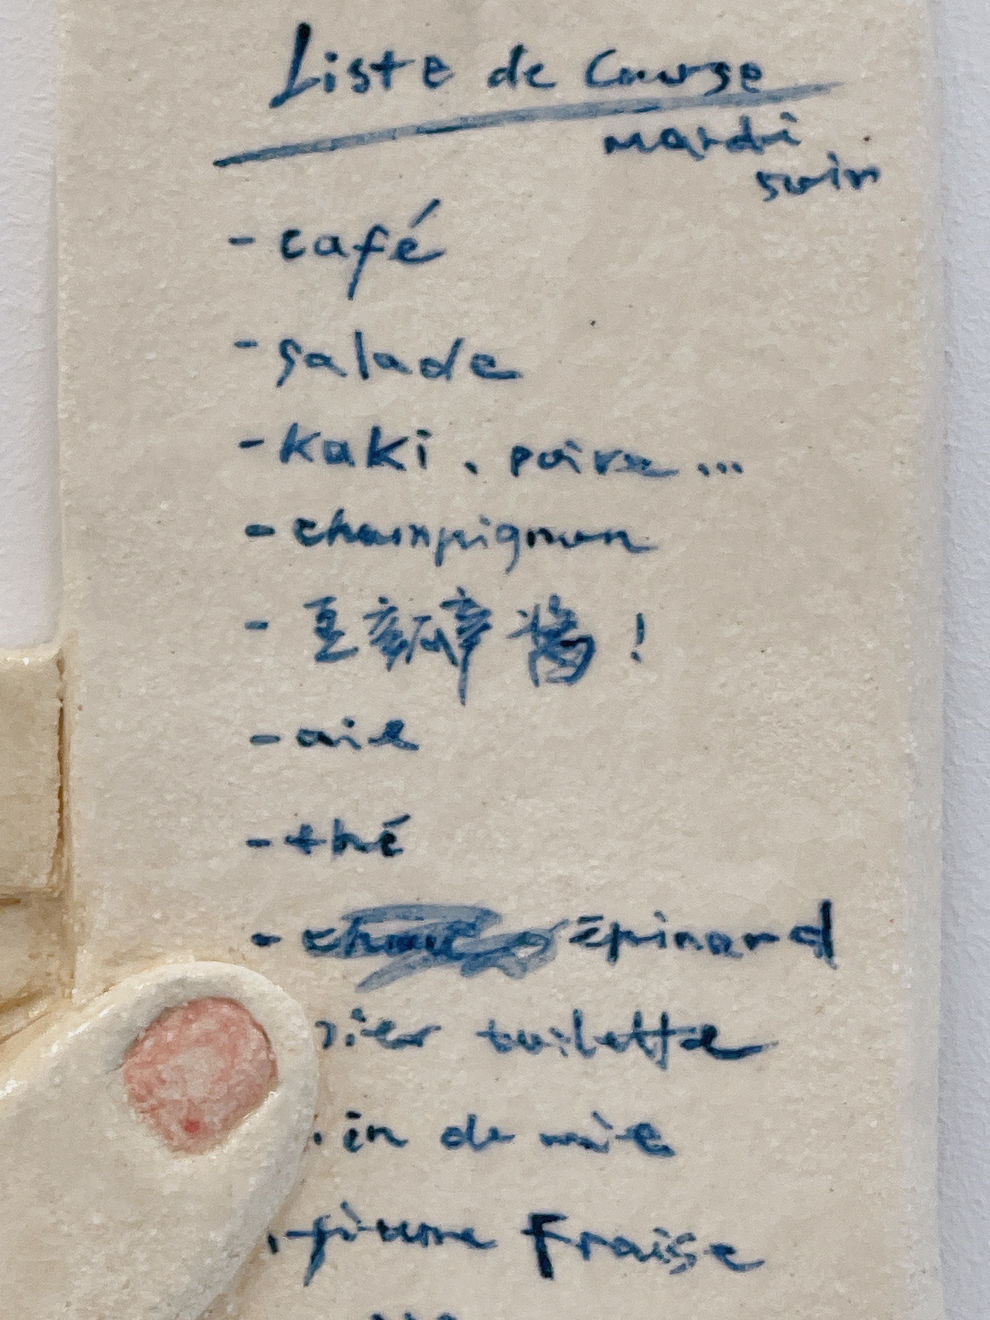 Liste de Course
mardi
soir
- café
- salade
- Kaki, poire ...
- champignon
- 豆瓣醬 !
- aie
- thé
- Épinard
pier toilette
in de mie
Fraise